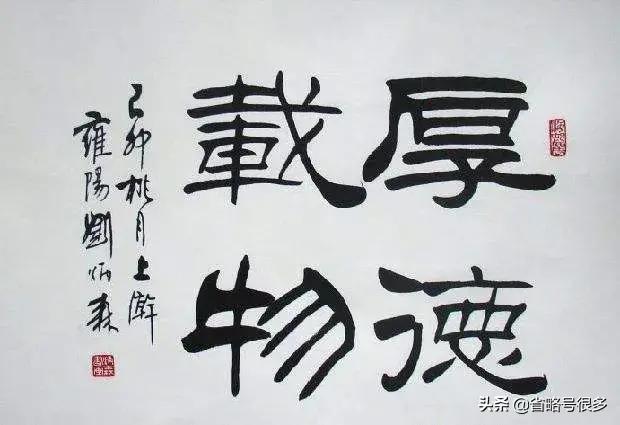 厚德
載物
己卯桃月上澣
雍陽劉炳森
头条 @省略号很多